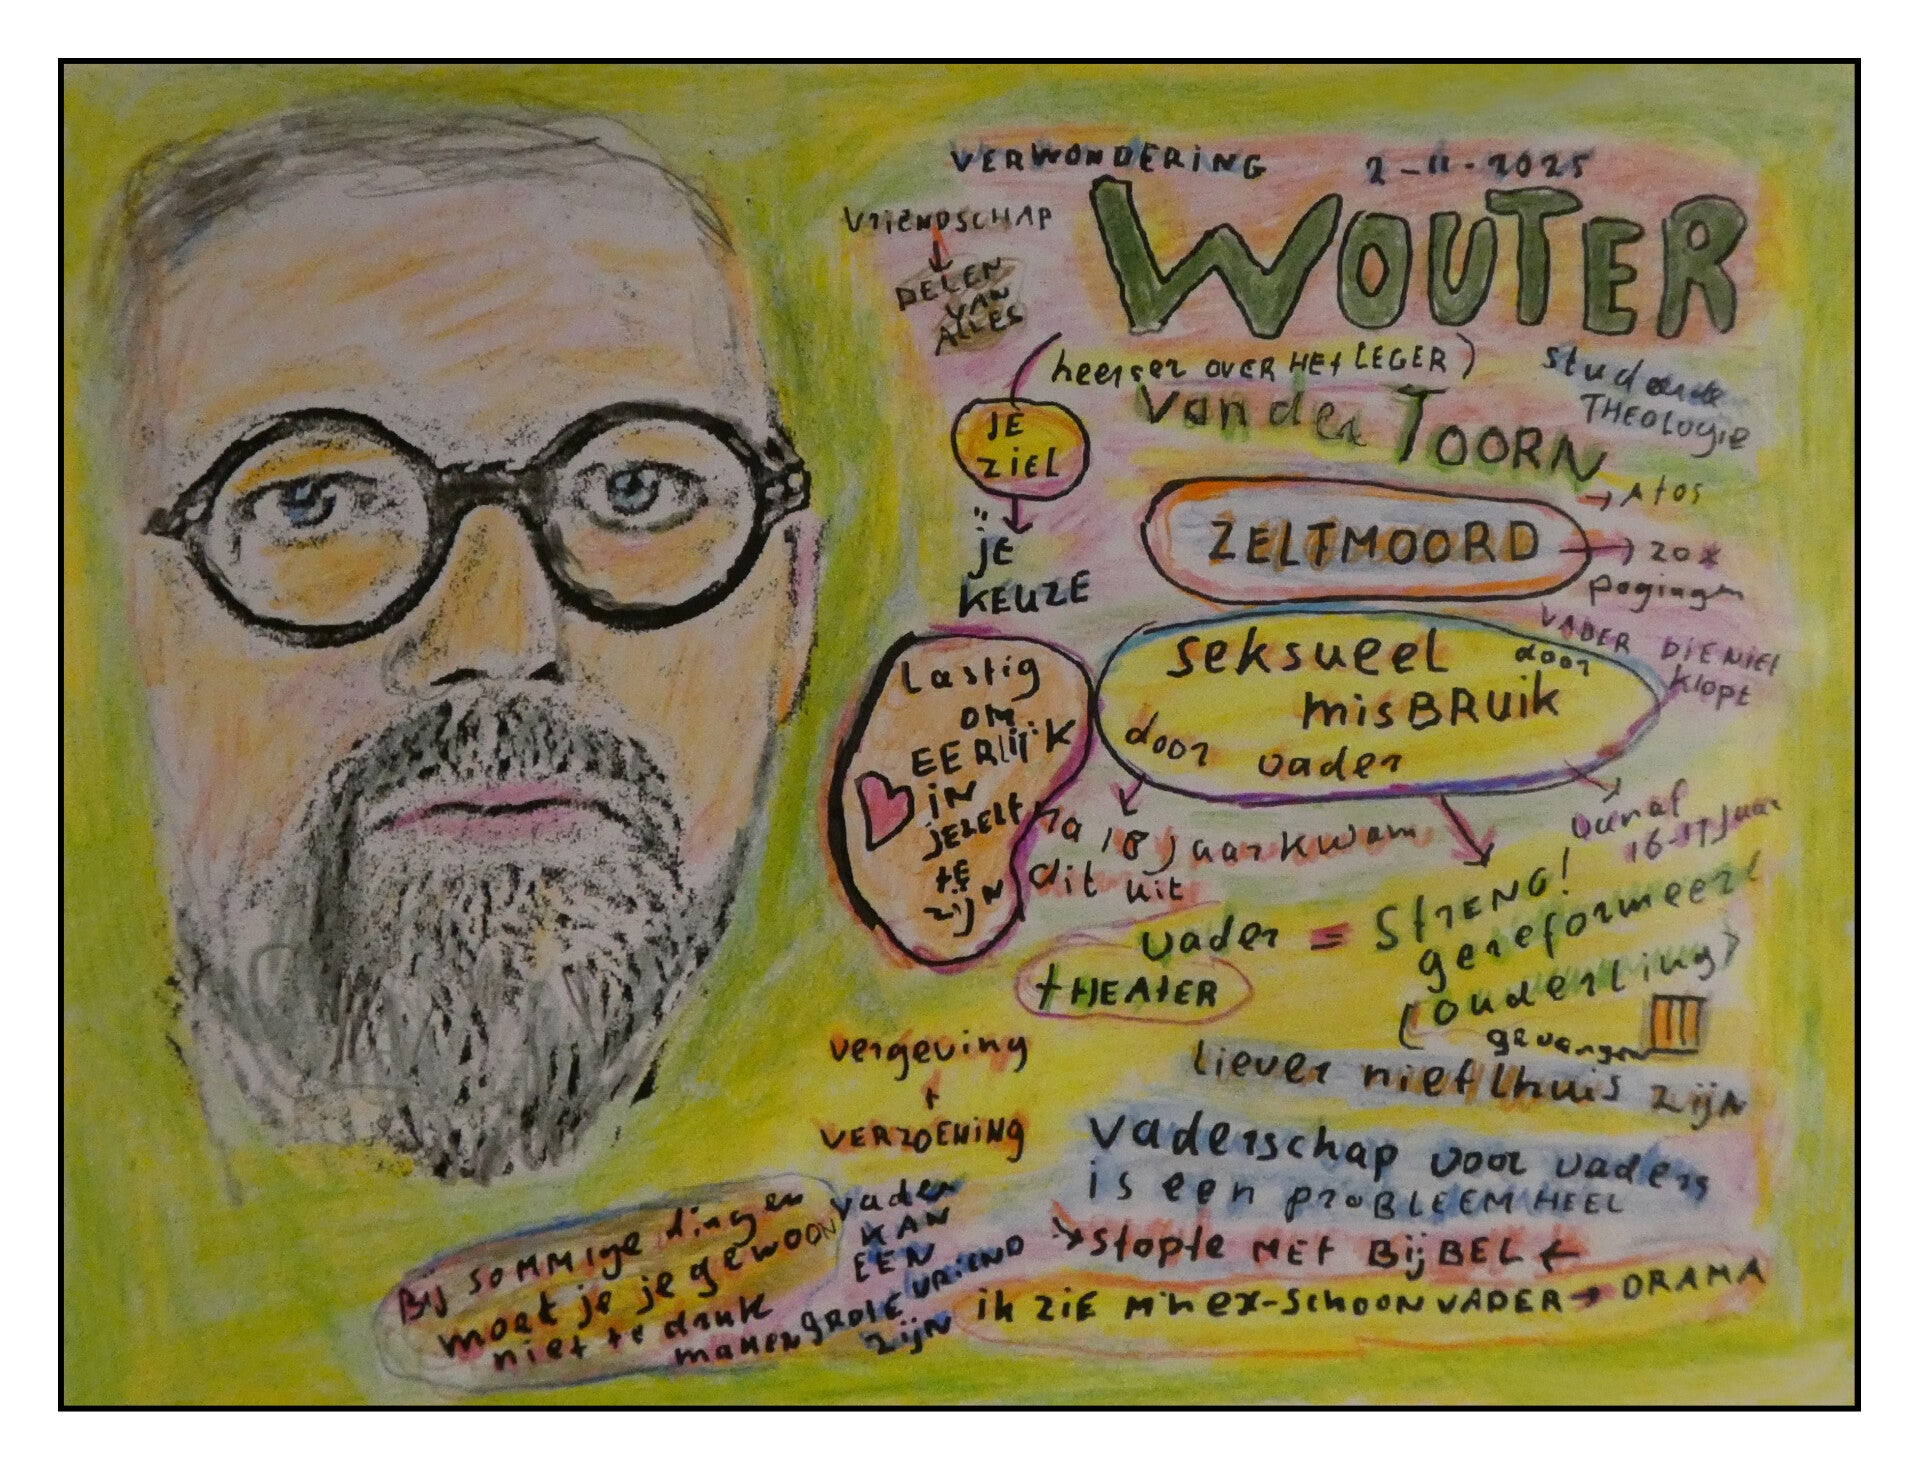 VERWONDERING 2-11-2025
WOUTER
VRIENDSCHAP
DELEN
VAN
ALLES
heerser OVER HET LEGER)
Van der TOORN
THEOLOGIE
JE
ZIEL
JE
KEUZE
ZELTMOORD
→ Atos
→ 20x
pogingen
VADER DIE NIET
klopt
seksueel door
misBRuik
door vader
Lastig
om
EERLIJK
iN
jezelf
te
zijn
na 18 jaar kwam
dit uit
vanaf
16-17 jaar
vader = StRENG!
gereformeerd
(ouderling)
gevangen
tHEAtER
liever niet thuis zijn
vergeving
+
VERZOENING
Vaderschap voor vaders
is een pROBLEEM HEEL
→ stopte MET BijBEL ←
ik ZiE m'n ex-SCHOONVADER → DRAMA
Bij sommige dingen
moet je je gewoon
niet te druk
maken
vader
KAN
EEN
GROTE VRIEND
zijn